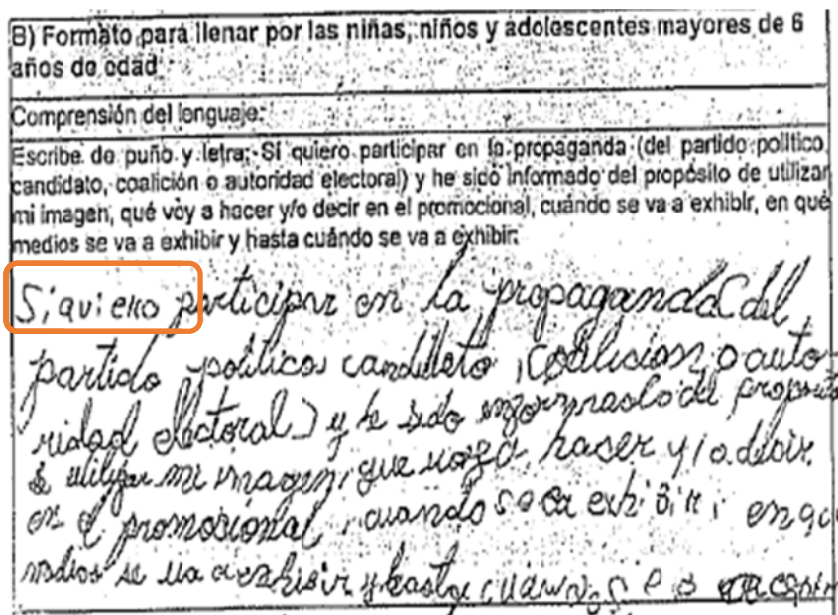 B) Formato para llenar por las niñas, niños y adolescentes mayores de 6
años de edad
Comprensión del lenguaje:
Escribe de puño y letra: Si quiero participar en la propaganda (del partido político,
candidato, coalición o autoridad electoral) y he sido informado del propósito de utilizar
mi imagen, qué voy a hacer y/o decir en el promocional, cuándo se va a exhibir, en qué
medios se va a exhibir y hasta cuándo se va a exhibir:
Si quiero participar en la propaganda (del
partido politico candidato, coalicion o auto
ridad electoral) y he sido informado del
de utilizar mi imagen, que voy a haser y/o decir
en el promosional, cuando se exhibir, en
medios se va a exhibir y hasta